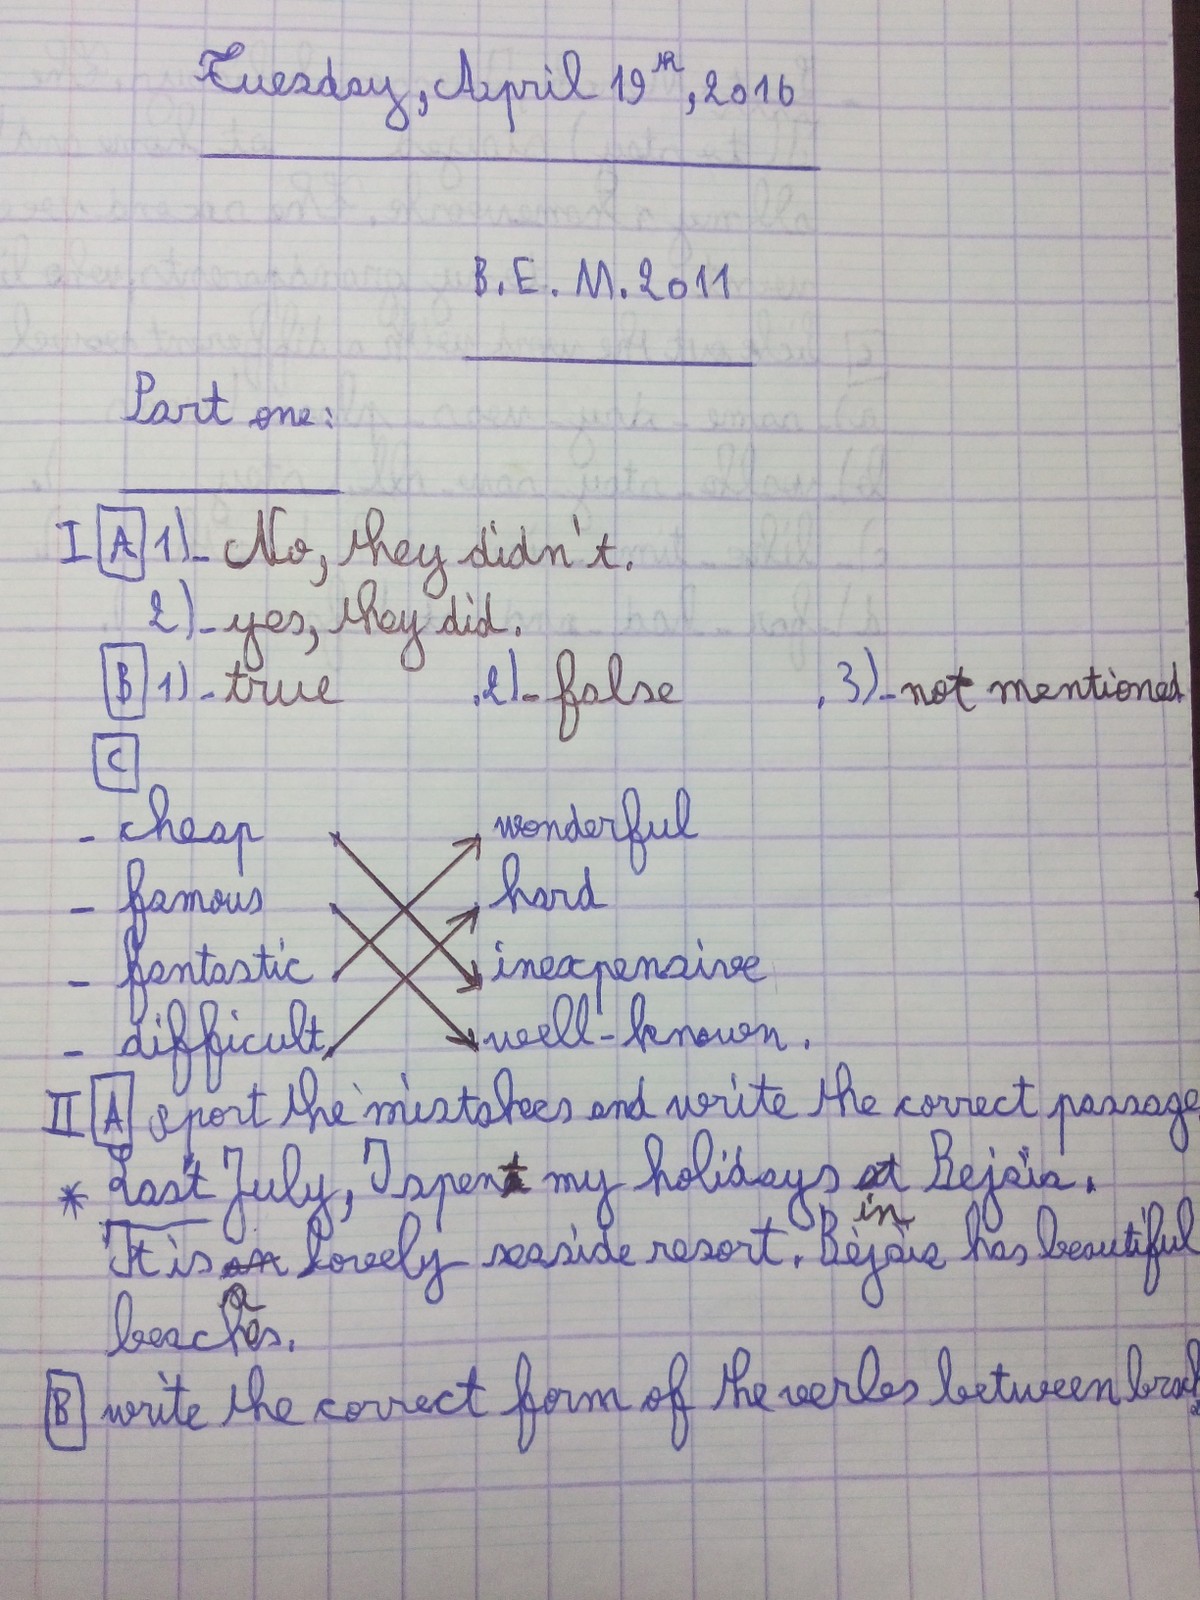 Tuesday, April 19th, 2016
B.E.M.2011
Part one:
I A 1)- No, they didn't.
2)- yes, they did.
B 1)- true .2)- false , 3)- not mentioned
C
- cheap wonderful
- famous hard
- fantastic inexpensive
- difficult well-known.
II A sport the mistakes and write the correct passage
* Last July, I spent my holidays at Bejaia.
in
It is an lovely seaside resort. Bejaia has beautiful
a
beaches.
B write the correct form of the verbs between